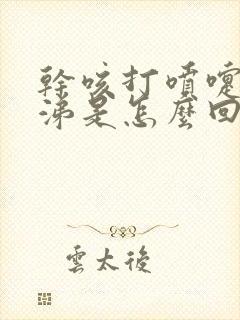 幹咳打噴嚏
涕是怎麼回
雲太後